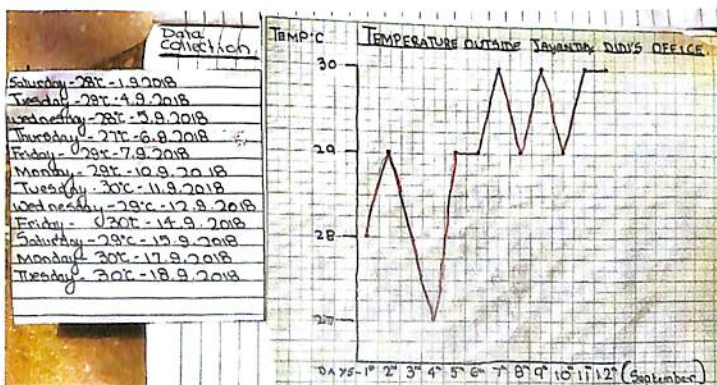 Data
Collection
Saturday - 28°c - 1.9.2018
Tuesday - 29°c - 4.9.2018
Wednesday - 28°c - 5.9.2018
Thursday - 27°c - 6.9.2018
Friday - 29°c - 7.9.2018
Monday - 29°c - 10.9.2018
Tuesday - 30°c - 11.9.2018
Wednesday - 29°c - 12.9.2018
Friday - 30°c - 14.9.2018
Saturday - 29°c - 15.9.2018
Monday - 30°c - 17.9.2018
Tuesday - 30°c - 18.9.2018
TEMP°C
TEMPERATURE OUTSIDE JAYANTAY DIDI'S OFFICE
30
29
28
27
DAYS - 1st 2nd 3rd 4th 5th 6th 7th 8th 9th 10th 11th 12th (September)